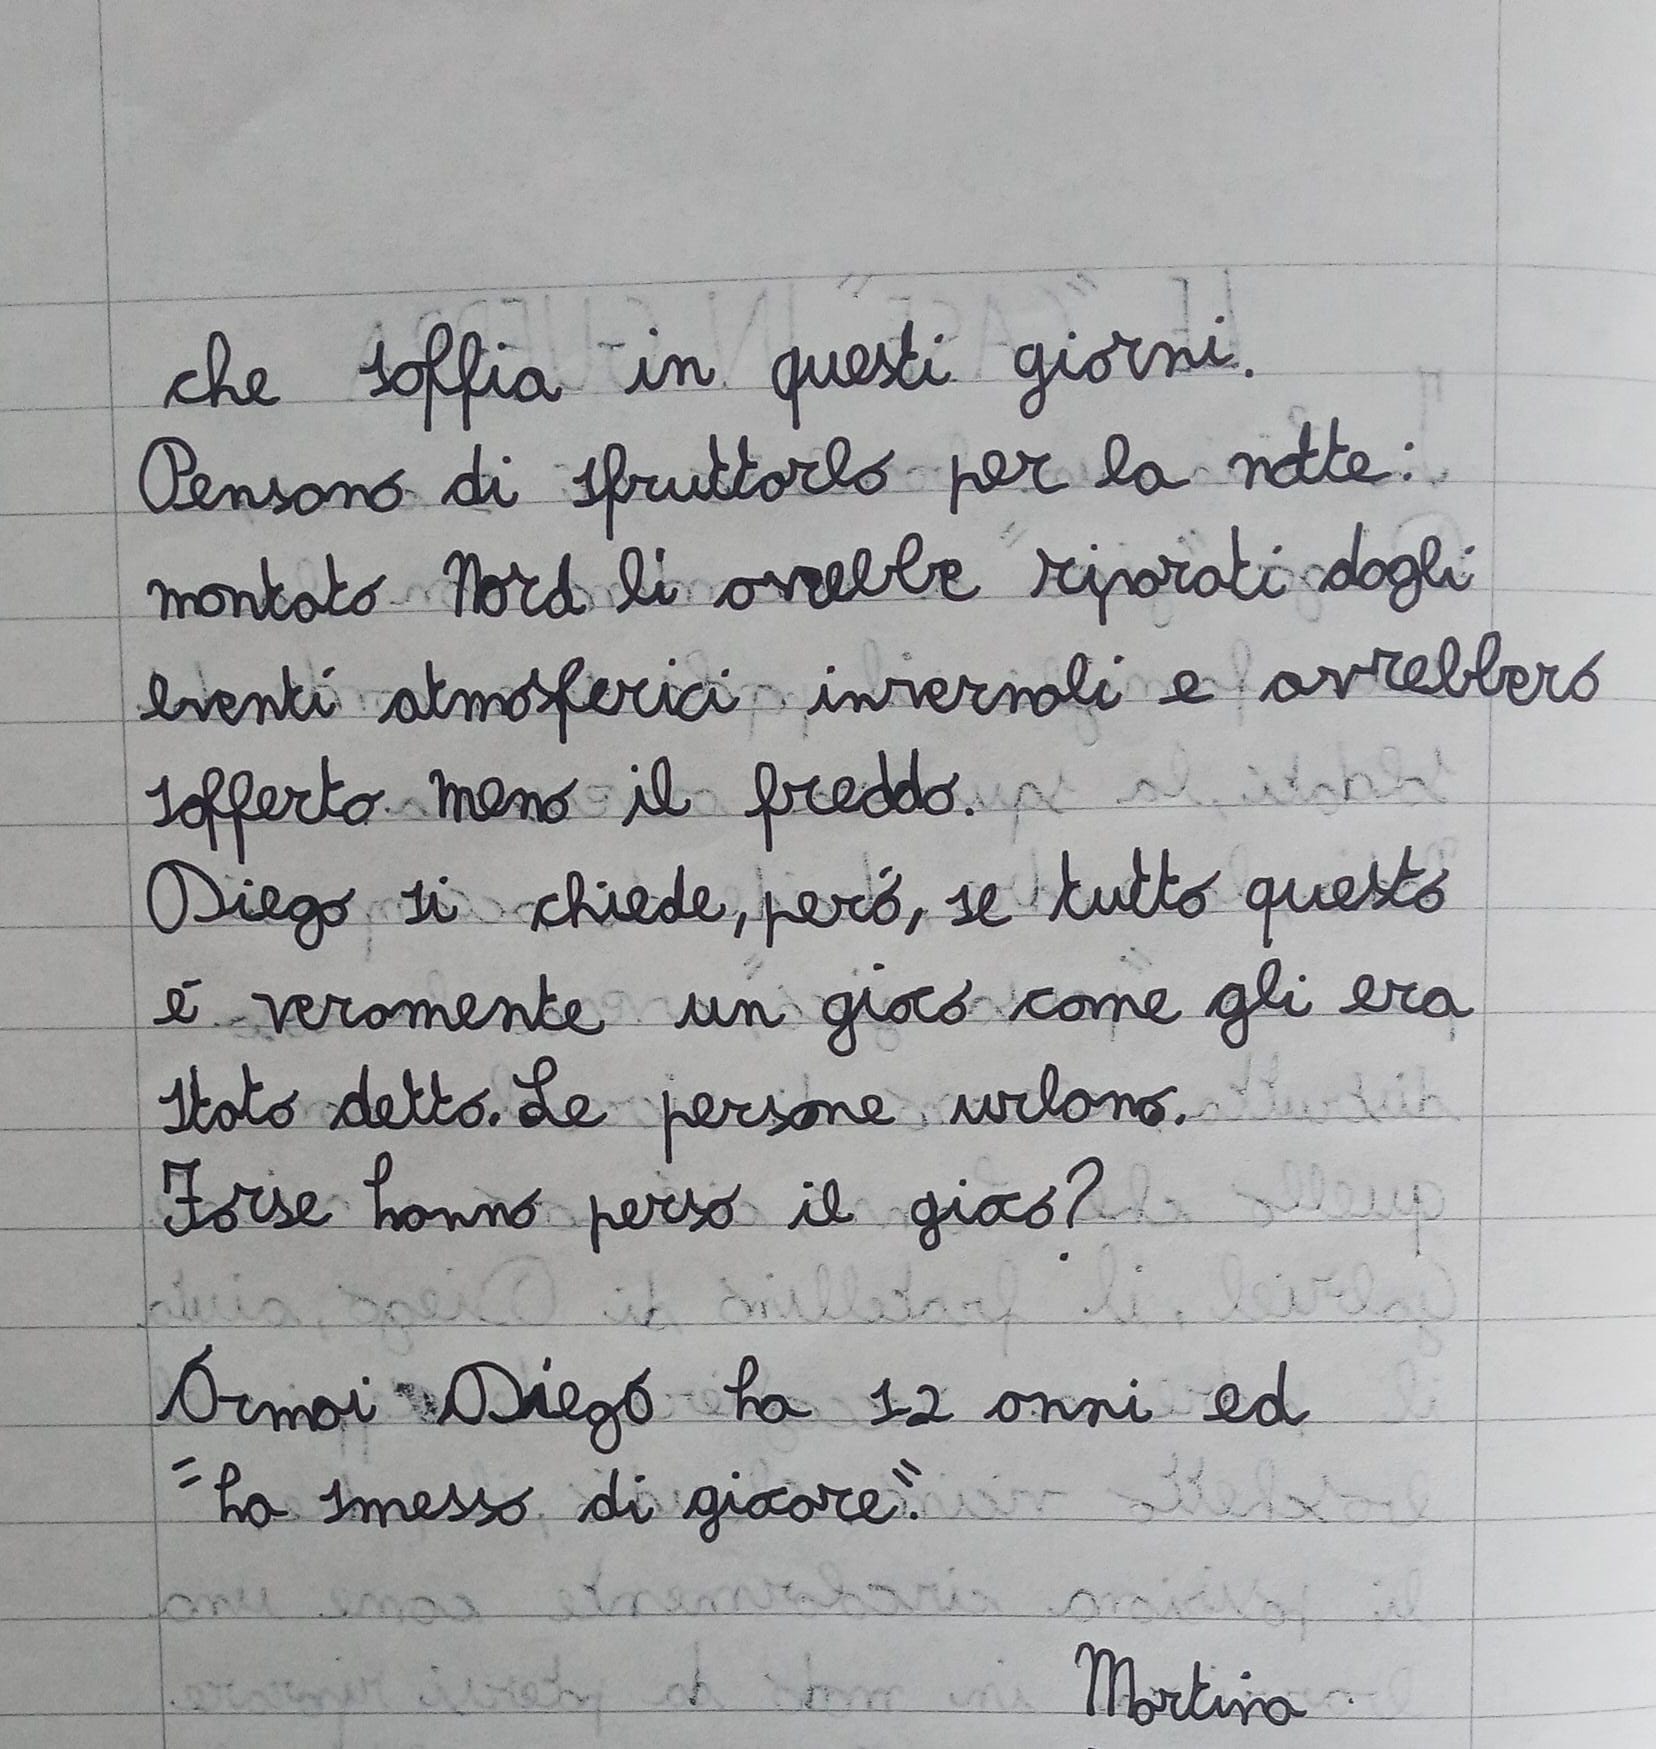 che soffia in questi giorni.
Pensano di sfruttarlo per la notte:
montato Nord li avrebbe riparati dagli
eventi atmosferici invernali e avrebbero
sofferto meno il freddo.
Diego si chiede, però, se tutto questo
è veramente un gioco come gli era
stato detto. Le persone urlano.
Forse hanno perso il gioco?
Ormai Diego ha 12 anni ed
"ha smesso di giocare".
Martina